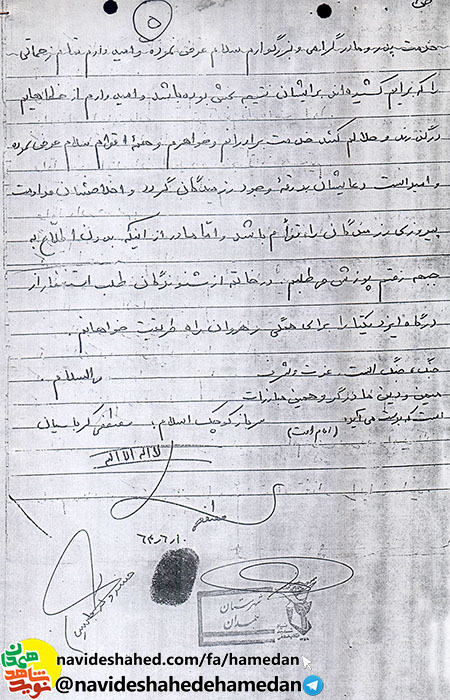 ۵
خدمت پدر و مادر گرامی و بزرگوارم سلام عرض نموده و امید وارم تمام زحماتی
را که برایم کشیده اند برایشان نتیجه بخش بوده باشد و امید وارم از خطاهایم
درگذرند و حلالم کنند خدمت برادرانم و خواهرم و همهٔ اقوام سلام عرض نموده
و امید است دعایشان بدرقهٔ وجود رزمندگان گردد و اخلاصشان مداومت
پیروزی رزمندگان را توأم باشد و امّا مادر از اینکه بدون اطلاع به
جبهه رفتم پوزش می طلبم . در خاتمه از شنوندگان طلب استغفار از
درگاه ایزد یکتا را برای همگی رهروان راه طریقیت خواهانم .
جنگ، جنگ است و عزت و شرف
والسلام .
میهن و دین ما در گرو همین مبارزات
است که بدست می آید.
(امام امت)
سرباز کوچک اسلام : مصطفی کرباسیان
لا اله الا الله
مصطفی
شهرستان
همدان
navideshahed.com/fa/hamedan
@navideshahedehamedan
نوید شاهد همدان